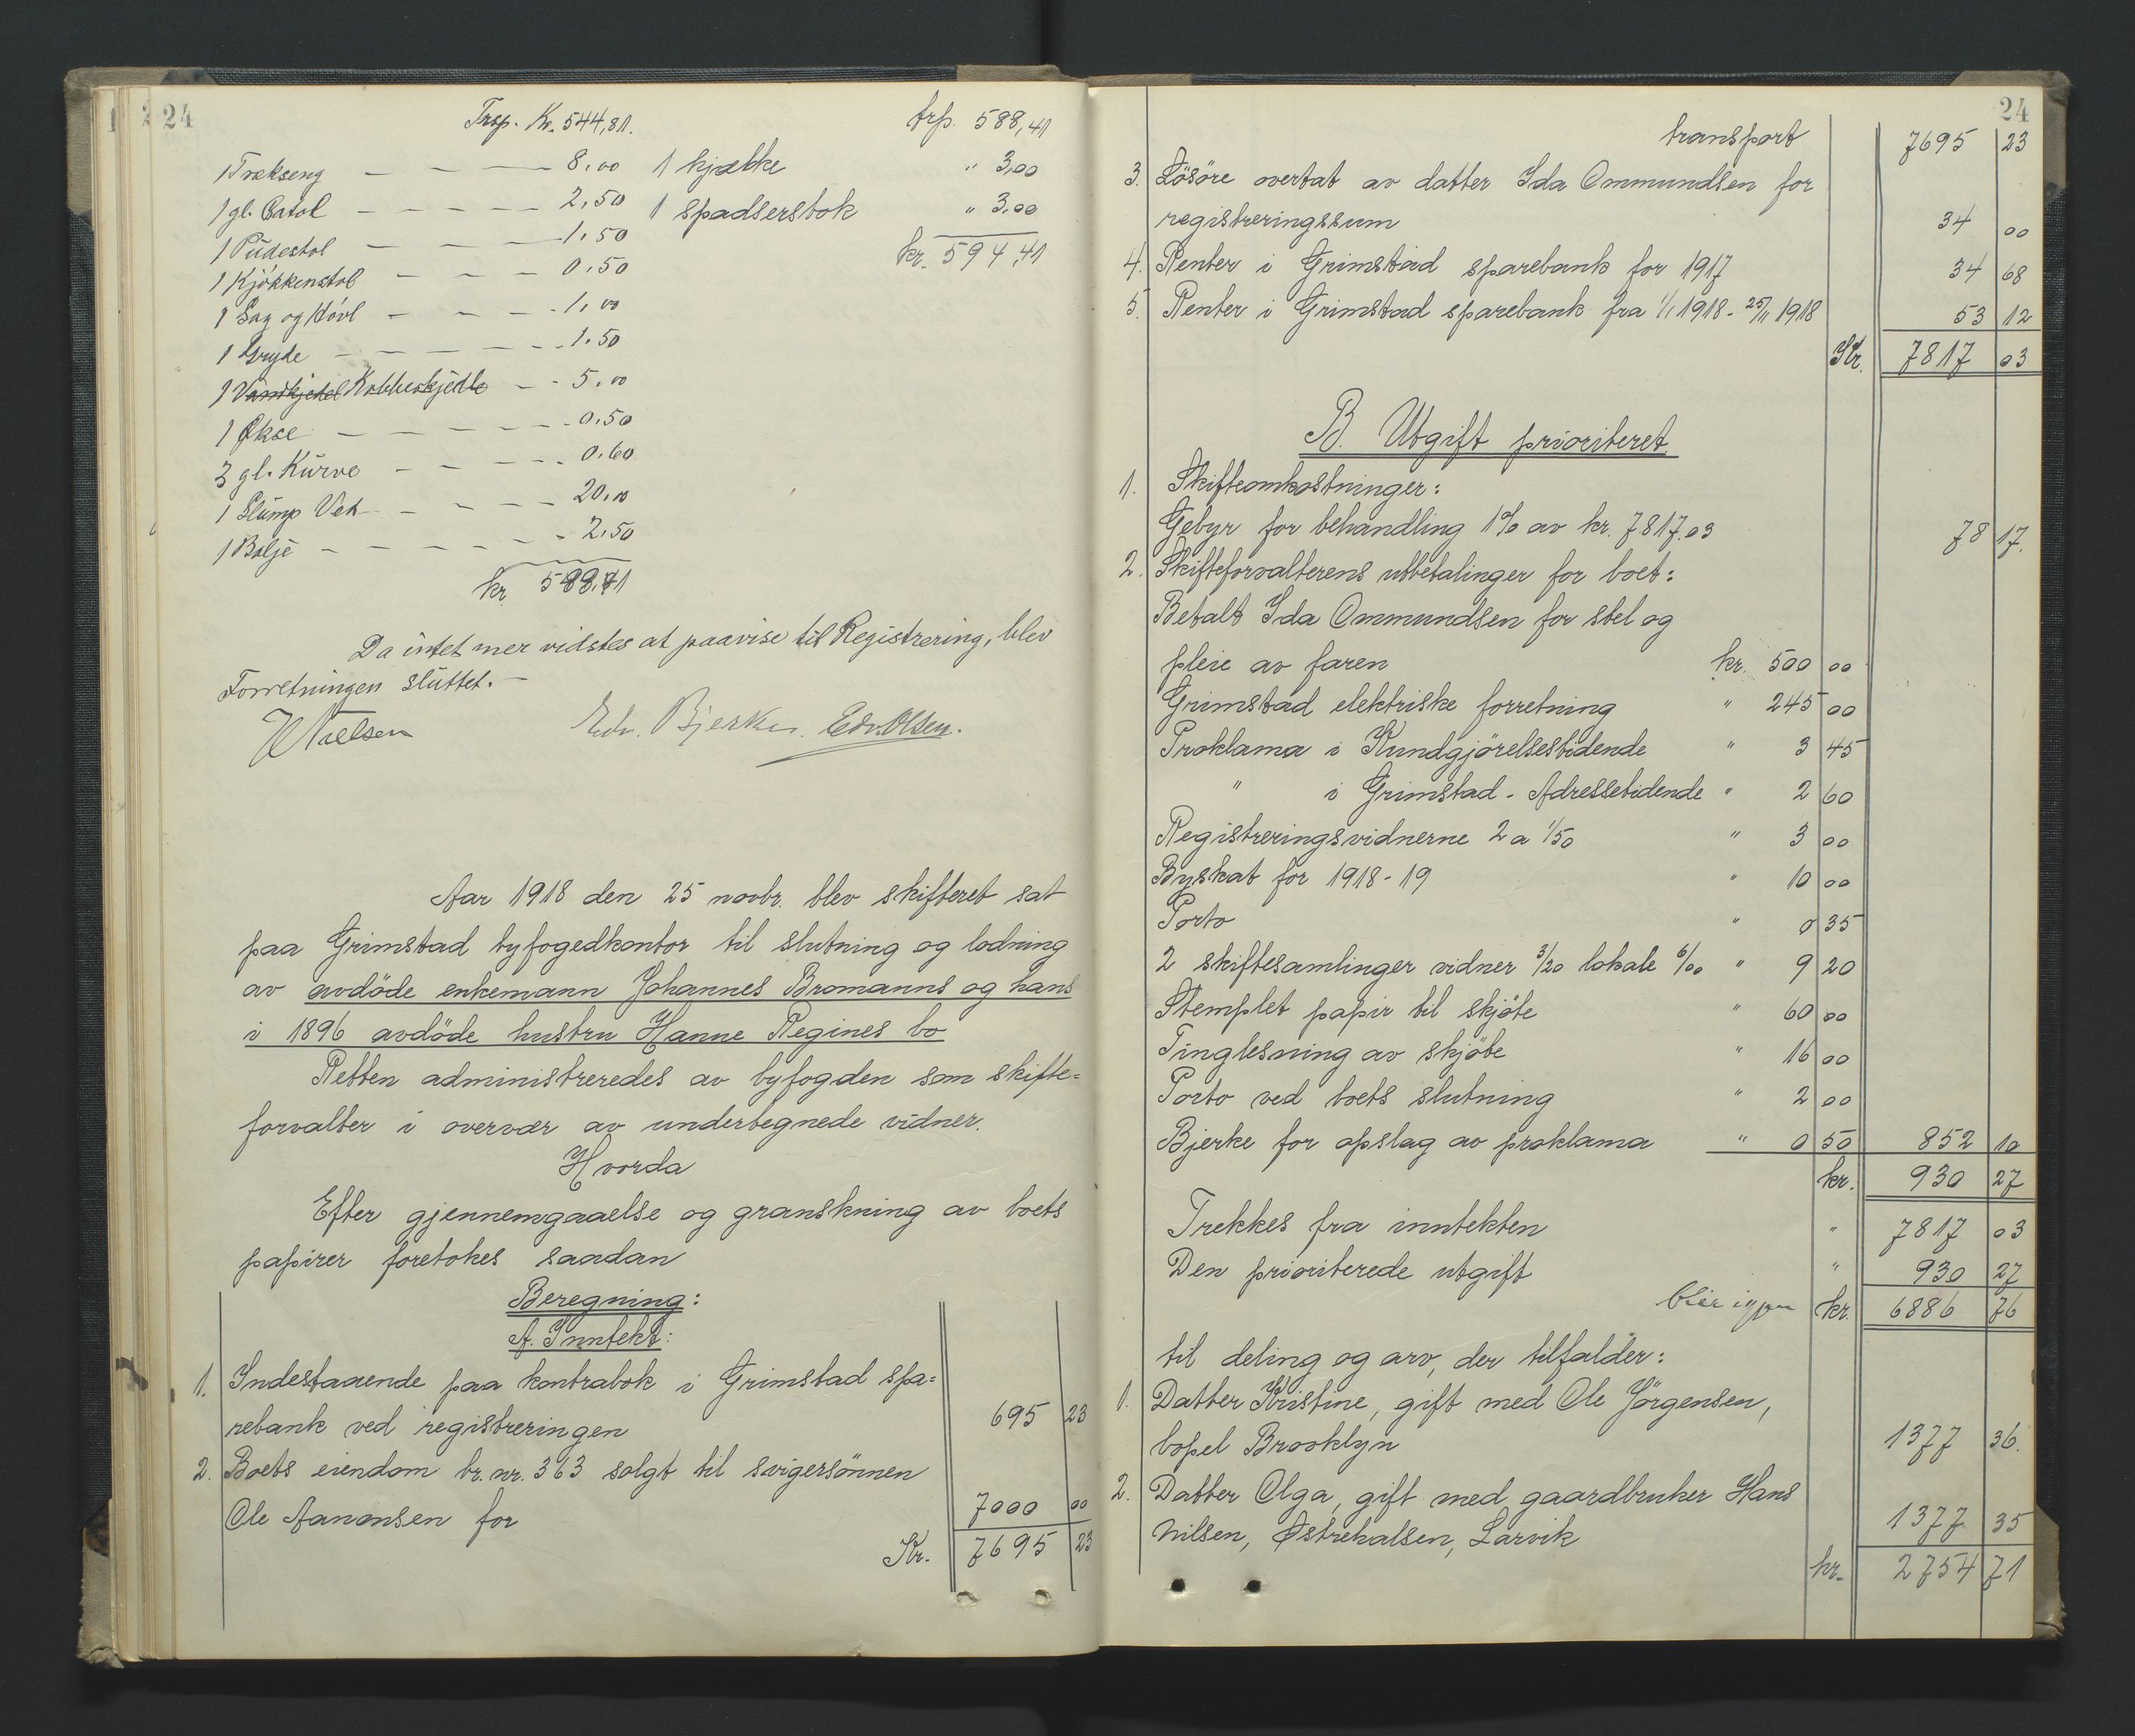 24
Trsp. Kr. 544,81.
1 Trækseng — — — 8,00
1 gl. Batol — — — — 2,50
1 Pudestol — — — 1,50
1 Kjøkkenstol — — — 0,50
1 Sag og Høvl — — — 1,00
1 Gryde — — — — 1.50
1 Vandkjedel Kobberkjedle — - 5,00
1 Økse — — — — — 0,50
3 gl. Kurve — — — — 0.60
1 Slump Ved — — — — 20,00
1 Balje — — — — — 2,50
kr. 588,41
trp. 588,41
1 kjætke " 3,00
1 spadserstok " 3,00
kr. 594,41
Da intet mer vidstes at paavise til Registrering, blev
Forretningen sluttet. —
Edv. Bjerke. Edv. Olsen.
Aar 1918 den 25 novbr. blev skifteret sat
paa Grimstad byfogedkontor til slutning og lodning
av avdöde enkemann Johannes Bromanns og hans
i 1896 avdöde hustru Hanne Regines bo
Retten administreredes av byfogden som skifte=
forvalter i overvær av undertegnede vidner.
Hvorda
Efter gjennemgaaelse og granskning av boets
papirer foretokes saadan
Beregning:
A. Inntekt:
1. Indestaaende paa kontrabok i Grimstad spa=
rebank ved registreringen 695 23
2. Boets eiendom br. nr. 363 solgt til svigersönnen
Ole Aanonsen for 7000 00
Kr. 7695 23
24
transport 7695 23
3. Lösöre overtat av datter Ida Ommundsen for
registreringssum 34 00
4. Renter i Grimstad sparebank for 1917 34 68
5. Renter i Grimstad sparebank fra 1/1 1918 - 25/11 1918 53 12
Kr. 7817 03
B. Utgift prioriteret.
1. Skifteomkostninger:
Gebyr for behandling 1% av kr. 7817.03 78 17.
2. Skifteforvalterens utbetalinger for boet:
Betalt Ida Ommundsen for stel og
pleie av faren kr. 500 00
Grimstad elektriske forretning " 245 00
Proklama i Kundgjörelsestidende " 3 45
" i Grimstad - Adressetidende " 2 60
Registreringsvidnerne 2 a 1/50 " 3 00
Byskat for 1918 - 19 " 10 00
Porto " 0 35
2 skiftesamlinger vidner 3/20 lokale 6/00 " 9 20
Stemplet papir til skjöte " 60 00
Tinglesning av skjöte " 16 00
Porto ved boets slutning " 2 00
Bjerke for opslag av proklama " 0 50 852 10
kr. 930 27
Trekkes fra inntekten " 7817 03
Den prioriterede utgift " 930 27
blir igjen kr. 6886 76
til deling og arv, der tilfalder:
1. Datter Kristine, gift med Ole Jörgensen,
bopel Brooklyn 1377 36.
2. Datter Olga, gift med gaardbruker Hans
Nilsen, Østrehalsen, Larvik 1377 35
kr. 2754 71